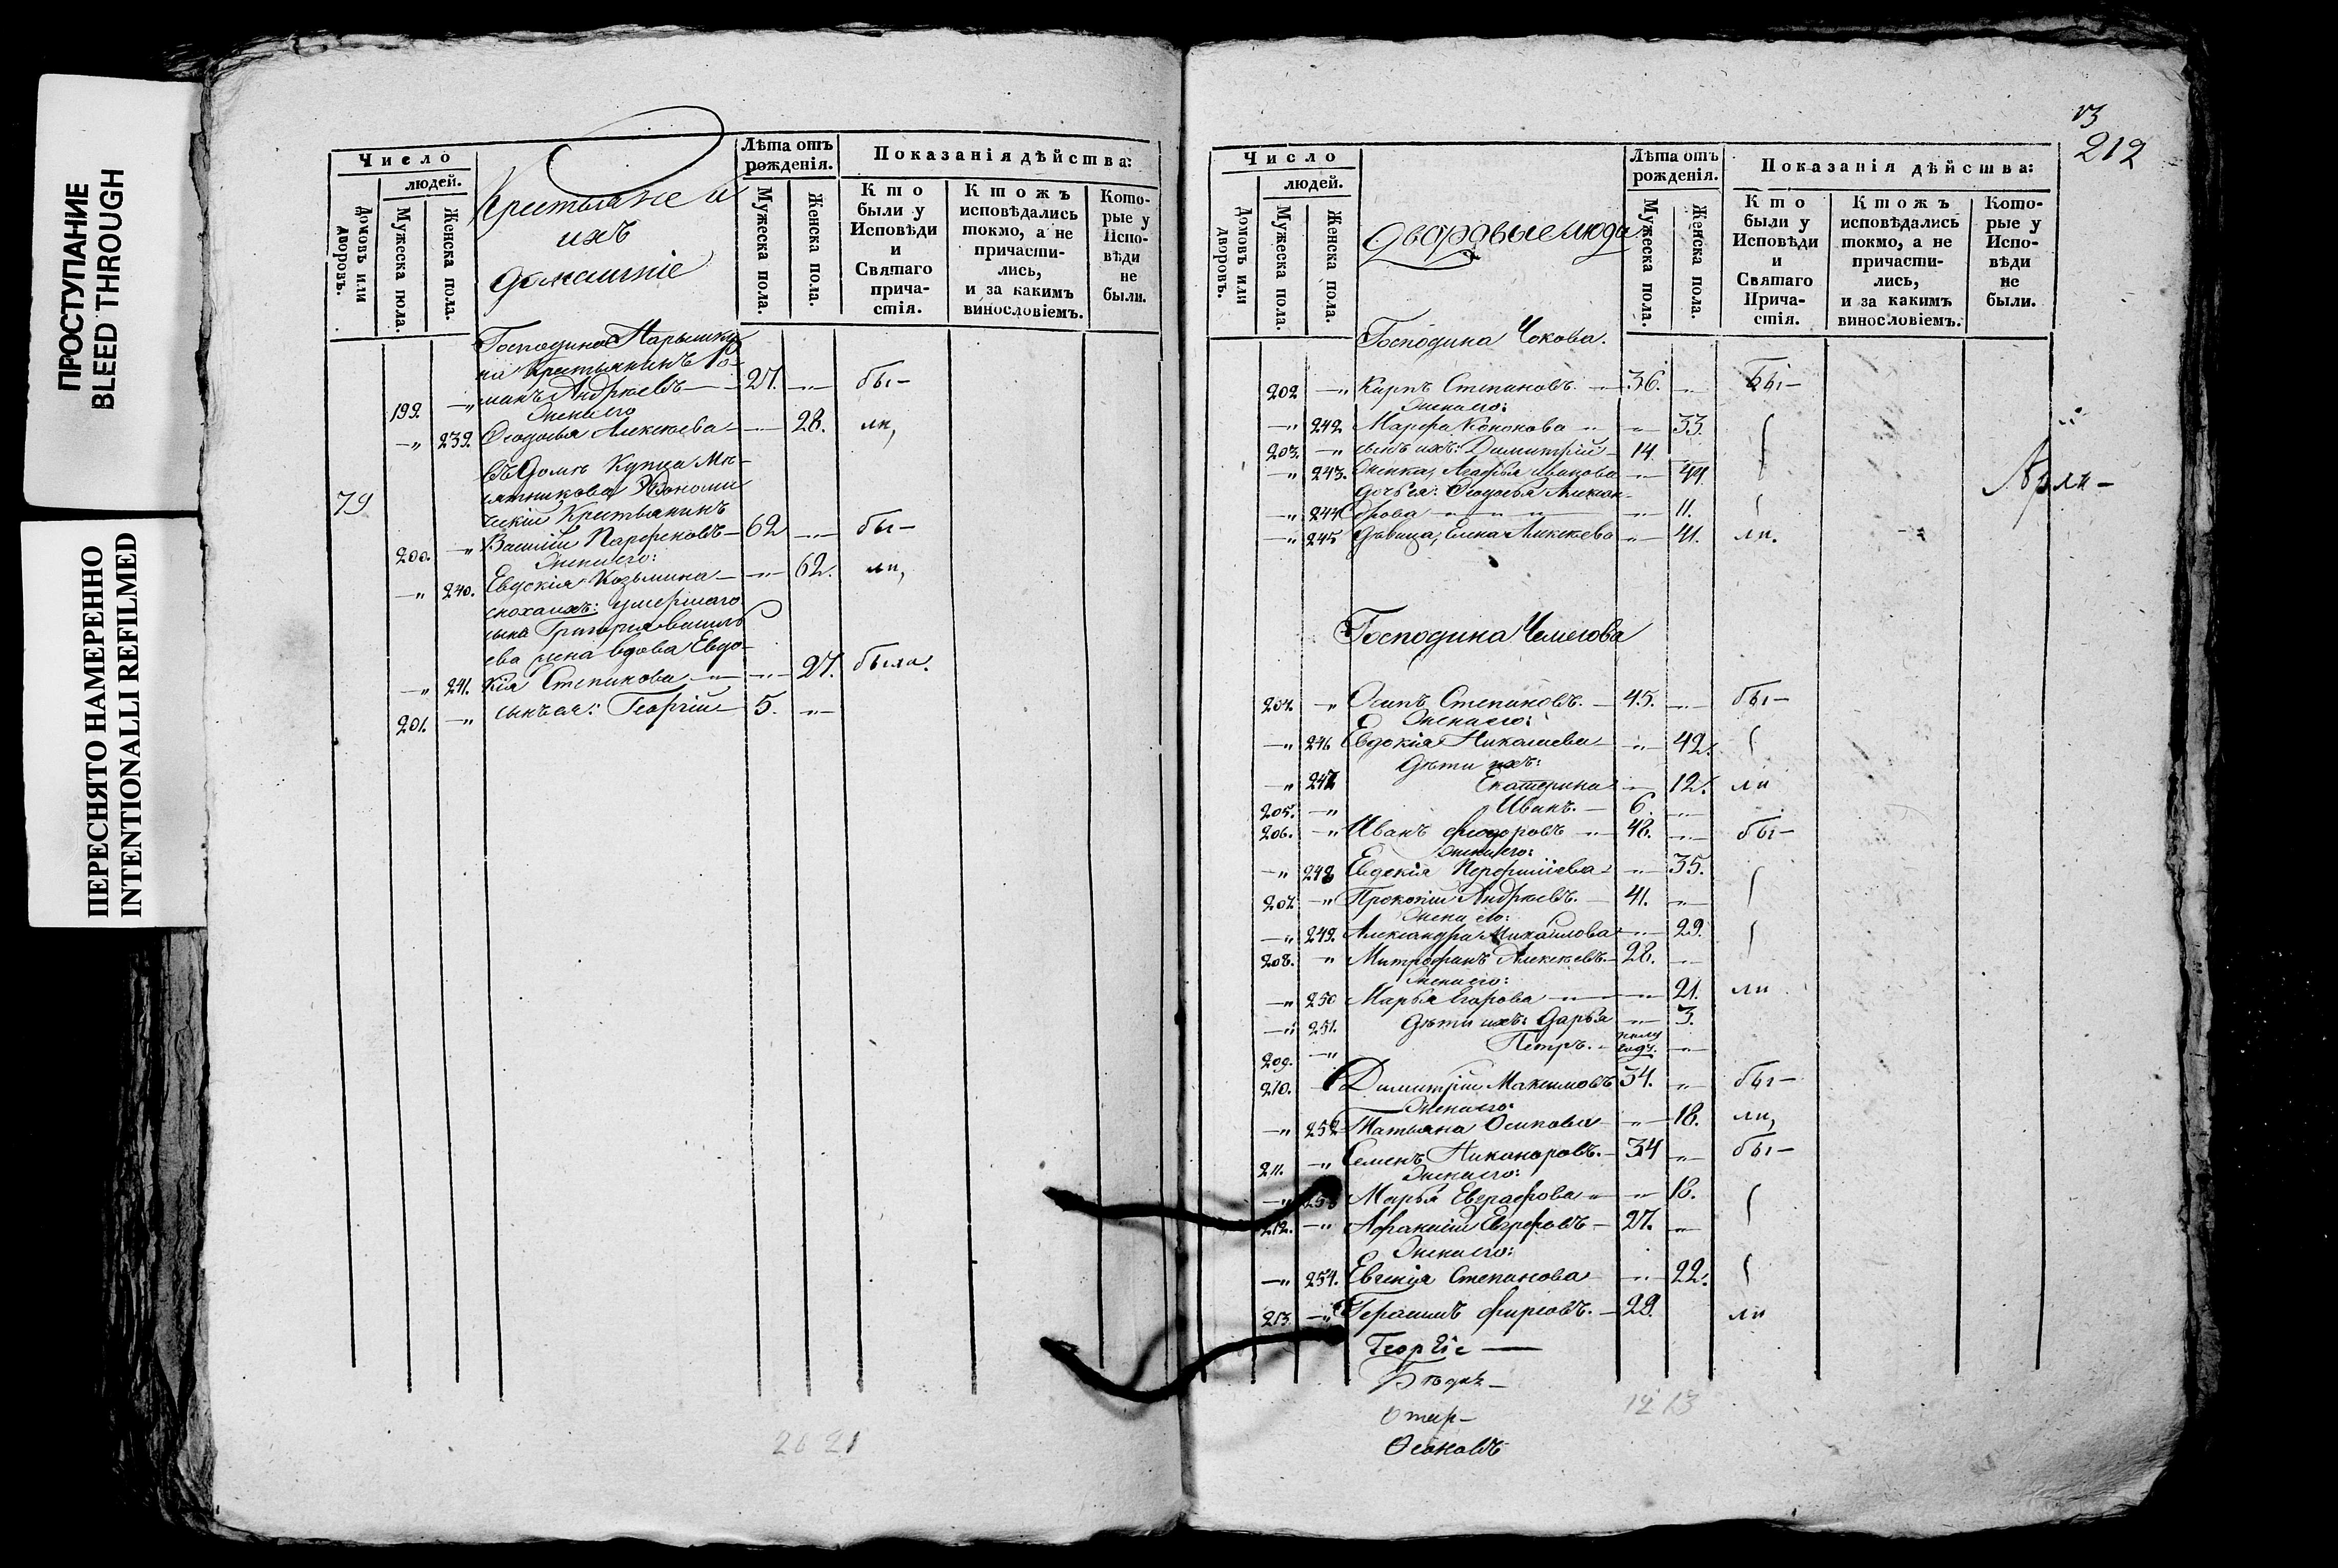 ПРОСТУПАНИЕ
BLEED THROUGH
ПЕРЕСНЯТО НАМЕРЕННО
INTENTIONALLI REFILMED
Число
людей.
Домовъ или дворовъ.
Мужеска пола.
Женска пола.
Крестьяне и
ихъ
домашніе
Лѣта отъ рожденія.
Мужеска пола.
Женска пола.
Показанія дѣйства:
Кто были у Исповѣди и Святаго прича-стія.
Ктожъ исповѣдались токмо, а не причасти-лись, и за какимъ винословіемъ.
Кото-рые у Испо-вѣди не были.
Господина Нарышки
на крестьянинъ Ро-
199. —„ манъ Андреевъ — 27. —„— бы—
жена его
—„ 239. Ѳеодосья Алексѣева — —„— 28. ли,
79
въ домѣ Купца Мя-
сятникова Экономи
ческій Крестьянинъ
200. —„ Василій Парѳеновъ — 62 —„— бы—
жена его:
—„ 240. Евдокія Козьмина — —„— 62. ли,
сноха ихъ: умершаго
сына Григорья Василь
ева жена вдова Евдо-
—„ 241. кія Степанова —„— 27. была.
201. —„ сынъ ея: Георгій — 5. —„—
20 21
13
212
Число
людей.
Домовъ или дворовъ.
Мужеска пола.
Женска пола.
Дворовые люди
Лѣта отъ рожденія.
Мужеска пола.
Женска пола.
Показанія дѣйства:
Кто были у Исповѣди и Святаго Прича-стія.
Ктожъ исповѣдались токмо, а не причасти-лись, и за какимъ винословіемъ.
Кото-рые у Испо-вѣди не были.
Господина Чокова.
202 —„ Карпъ Степановъ. — 36. —„— Бы—
жена его:
—„ 242 Марѳа Кононова —„— 33.
203. —„ сынъ ихъ: Димитрій — 14
—„ 243. женка, Агафья Иванова —„— 44
дочь ея: Ѳеодосья Алексан-
—„ 244 дрова —„— 11.
—„ 245 девица, Елена Алексѣева —„— 41. ли.
Господина Чемесова
204. —„ Осипъ Степановъ. — 45. —„— бы—
жена его:
—„ 246 Евдокія Николаева —„— 42.
дѣти ихъ:
—„ 247 Екатерина —„— 12. ли
205. —„ Иванъ. — 6. —„—
206. —„ Иванъ Ѳеодоровъ —„— 48. —„— бы—
жена его:
—„ 248 Евдокія —„— 35.
207. —„ Прокопій Андреевъ. — 41. —„—
жена его:
—„ 249. Александра Михаилова —„— 29.
208. —„ Митрофанъ Алексѣевъ. — 28. —„—
жена его:
—„ 250 Марья Егорова —„— 21. ли
—„ 251. дѣти ихъ: Дарья —„— 3.
209. —„ Петръ. — полу годъ. —„—
210. Димитрій Максимовъ 34. —„— бы—
жена его:
—„ 252 Татьяна Осипова —„— 18. ли,
211. —„ Семенъ Никаноровъ. — 34 —„— бы—
жена его:
—„ 253 Марья Евграфова —„— 18.
212. —„ — 27. —„—
жена его:
—„ 254. Евгенія Степанова —„— 22.
213 —„ Герасимъ Фирсовъ. — 29. ли
Георгіе —
12 13